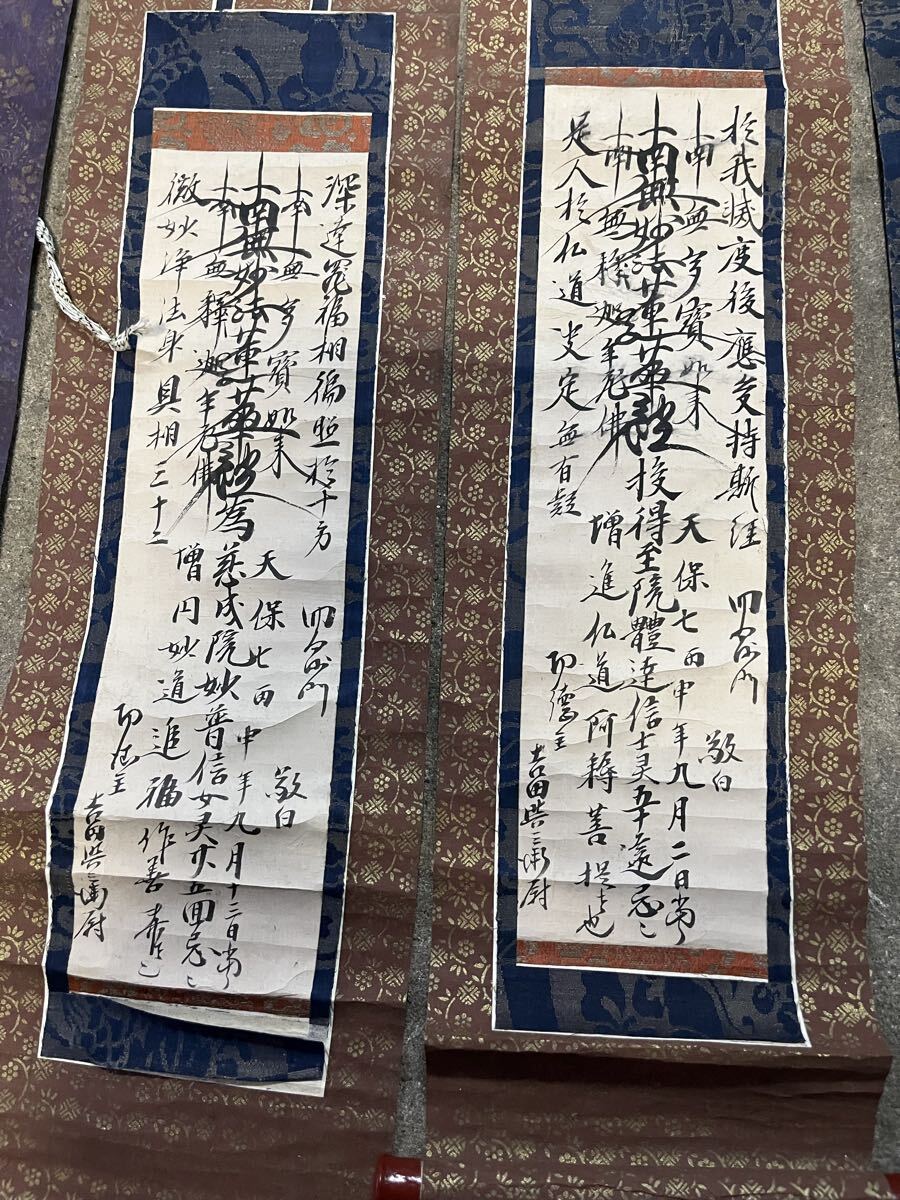 於我滅度後應受持斯經
敬白
南無多寶如来
天保七丙申年九月二日当
南無妙法蓮華經 授得至院體達信士灵五十遠忌之
南無釋迦牟尼佛
増進仏道阿耨菩提者也
是人於仏道决定無有疑
功德主
吉田與三
深達罪福相徧照於十方
敬白
南無多寶如来
天保七丙申年九月十二日当
南無妙法蓮華經 為慈成院妙普信女灵廿五回忌之
南無釋迦牟尼佛
増円妙道追福作善
微妙浄法身具相三十二
功徳主
吉田與三